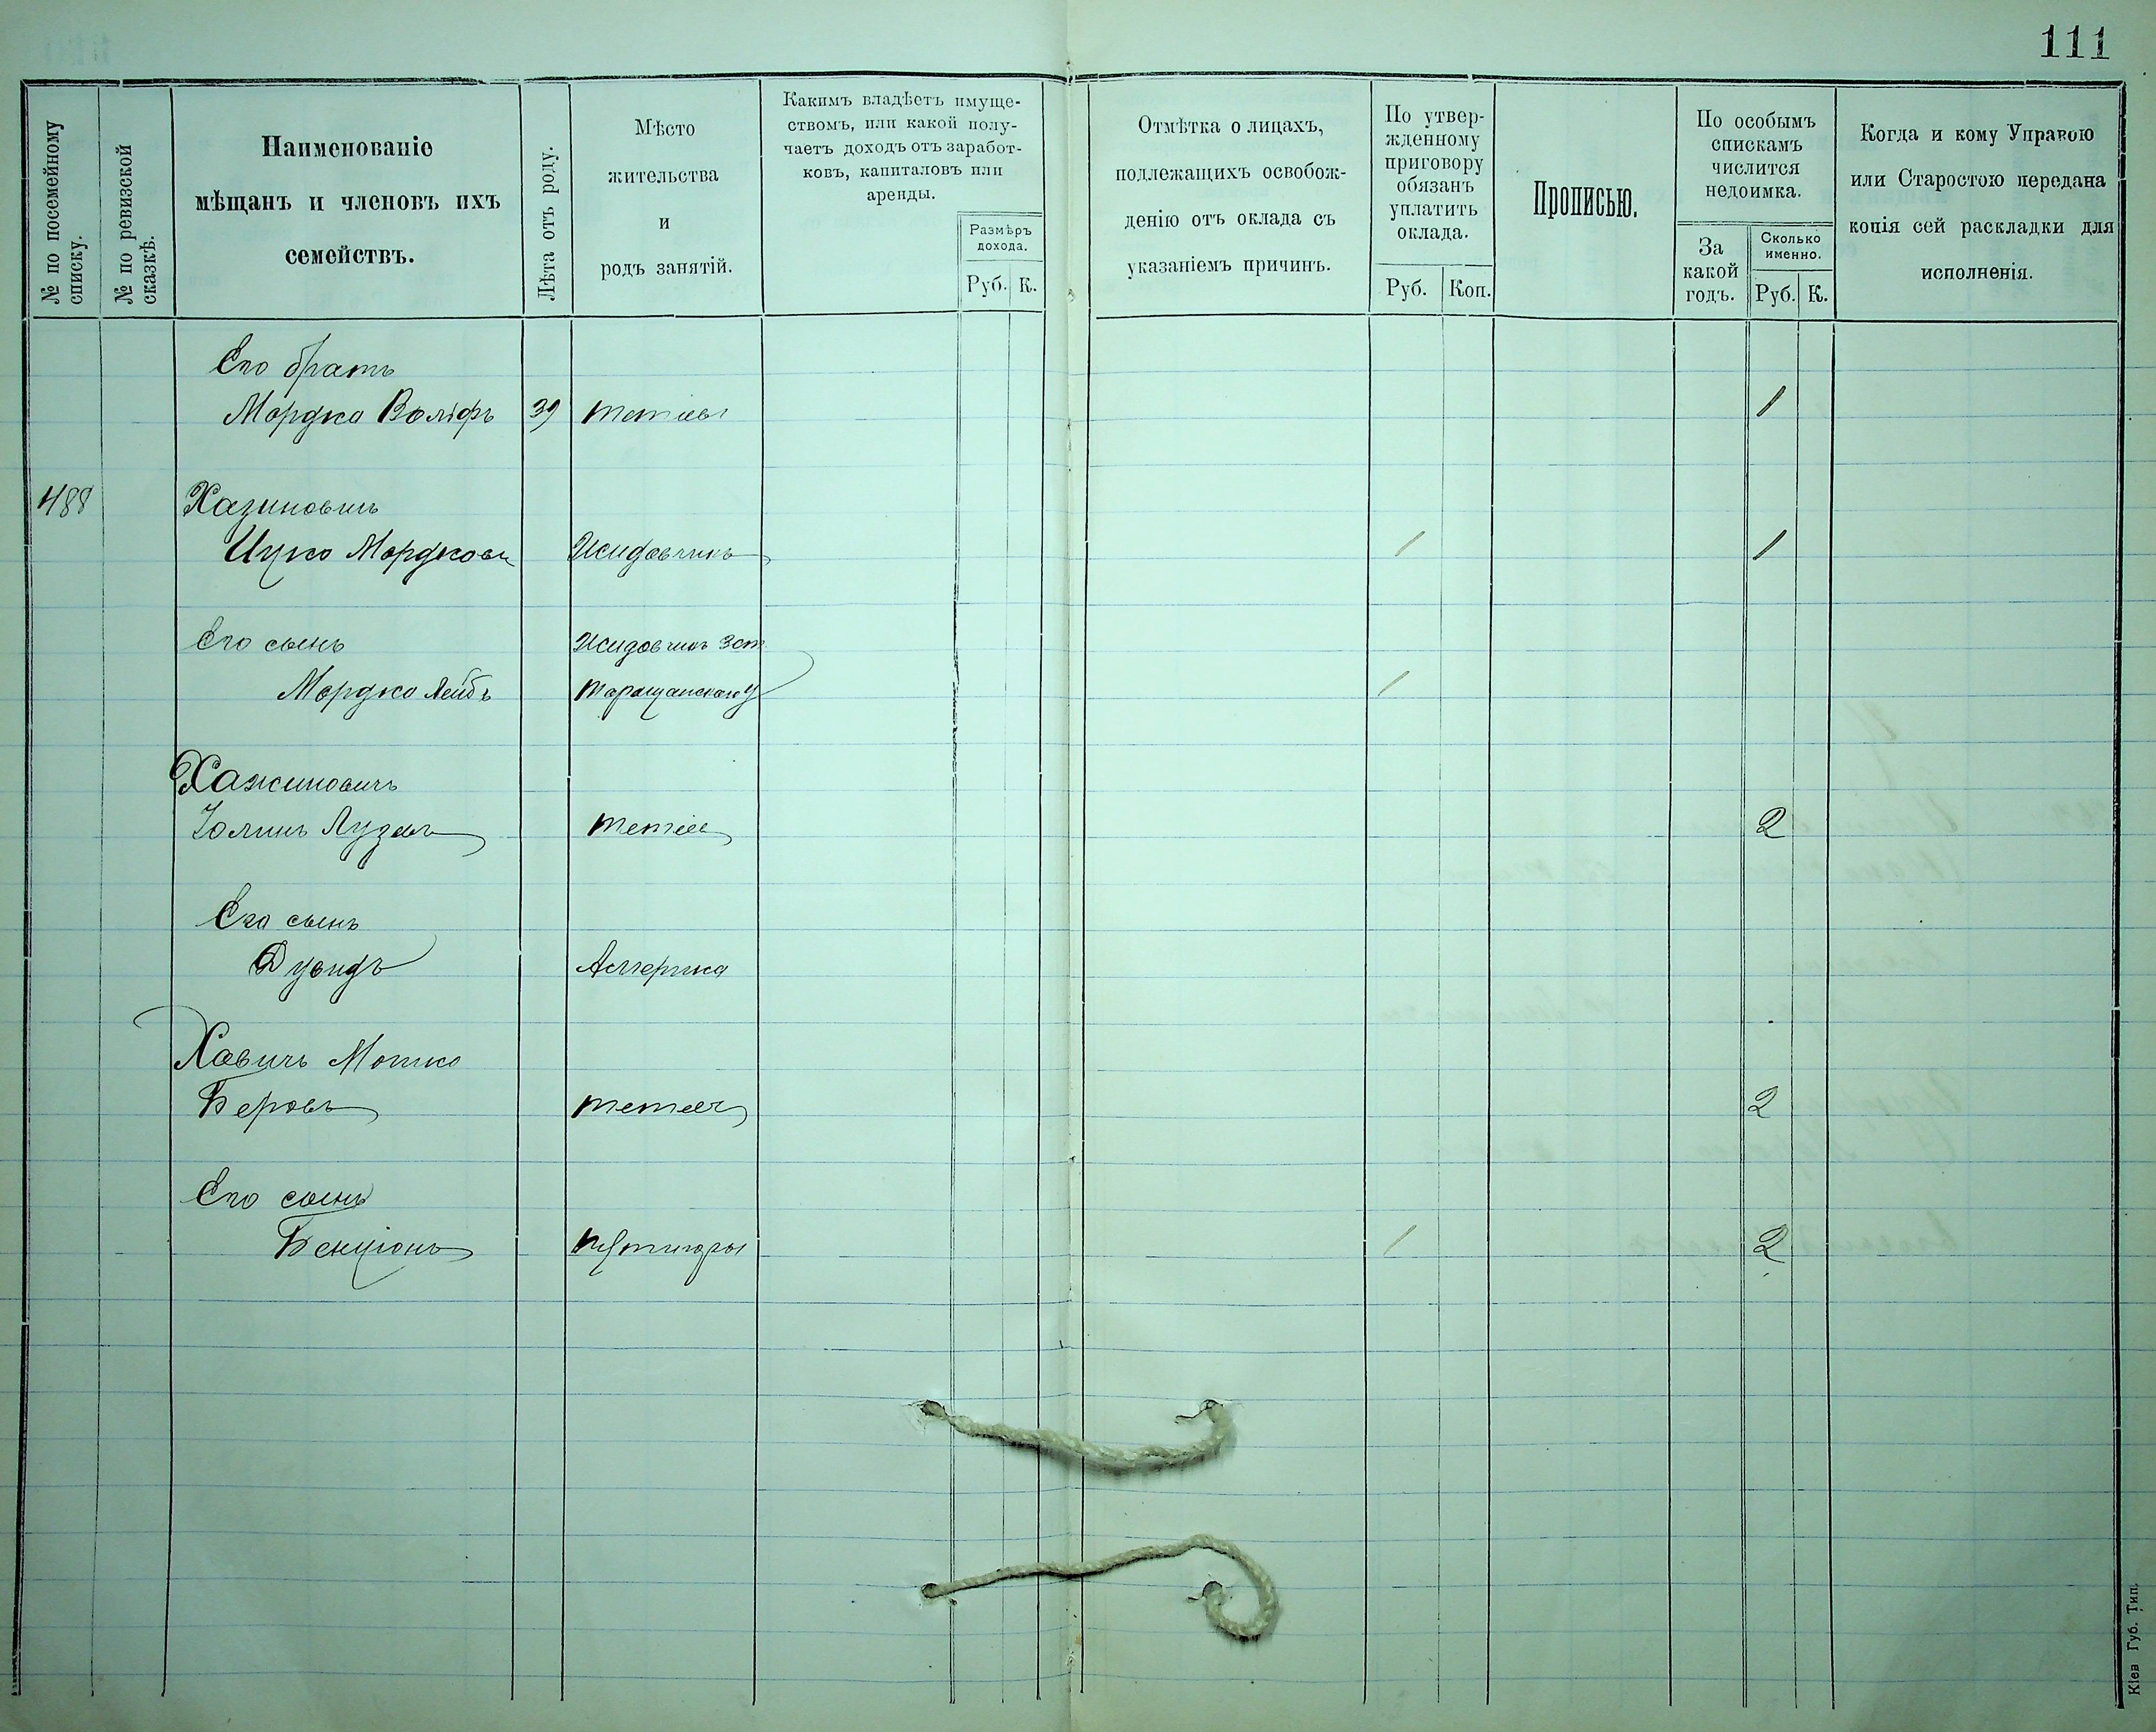 111
№ по посемейному
списку.
№ по ревизской
сказкѣ.
Наименованіе
мѣщанъ и членовъ ихъ
семействъ.
Лѣта отъ роду.
Мѣсто
жительства
и
родъ занятій.
Какимъ владѣетъ имуще-
ствомъ, или какой полу-
чаетъ доходъ отъ заработ-
ковъ, капиталовъ или
аренды.
Размѣръ
дохода.
Руб. К.
Отмѣтка о лицахъ,
подлежащихъ освобож-
денію отъ оклада съ
указаніемъ причинъ.
По утвер-
жденному
приговору
обязанъ
уплатить
оклада.
Руб. Коп.
Прописью.
По особымъ
спискамъ
числится
недоимка.
За
какой
годъ.
Сколько
именно.
Руб. К.
Когда и кому Управою
или Старостою передана
копія сей раскладки для
исполненія.
Его братъ
Мордко Волфъ 39 1
488 Хазиновичъ
Ицко Мордков 1 1
Его сынъ
Мордко Лейбъ Таращанскаго у 1
Хажиновичъ
2
Его сынъ
Дувидъ Америка
Хавичъ Мошко
Беровъ 2
Его сынъ
Бенціонъ 1 2
Кіев Губ. Тип.